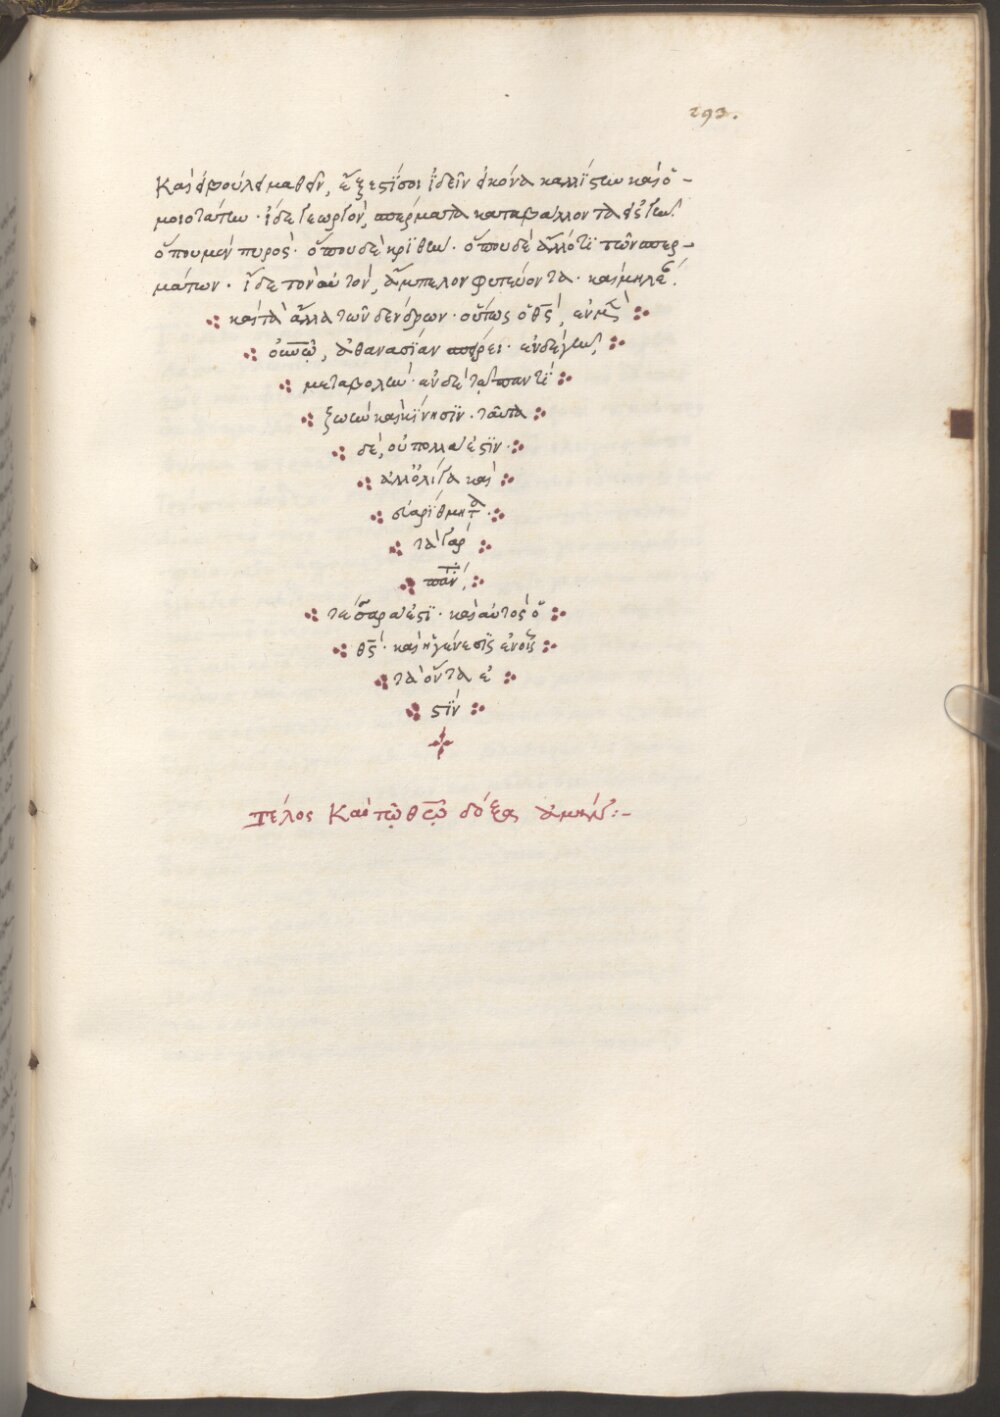 293.
Καὶ εἰ βούλει μαθεῖν, ἔξεστί σοι ἰδεῖν εἰκόνα καλλίστην καὶ ὁ-
μοιοτάτην· ἴδε γεωργὸν, σπέρματα καταβάλλοντα εἰς γῆν·
ὅπου μὲν πυρὸς· ὅπου δὲ κριθὴν· ὅπου δὲ ἄλλό τι τῶν σπερ-
μάτων· ἴδε τὸν αὐτὸν, ἄμπελον φυτεύοντα· καὶ μηλέαν
καὶ τὰ ἄλλα τῶν δένδρων· οὕτως ὁ θς, ἐν μὲν
οὐνῷ, ἀθανασίαν σπείρει· ἐν δὲ γῆ
μεταβολὴν· ἐν δὲ τῷ παντὶ
ζωὴν καὶ κίνησιν· ταῦτα
δὲ, οὐ πολλά ἐστιν·
ἀλλ' ὀλίγα καὶ
εὐαρίθμητα·
τὰ γὰρ
πάντα
τέσσαρα ἐστὶ· καὶ αὐτὸς ὁ
θς· καὶ ἡ γένεσις ἐν οἷς
τὰ ὄντα ἐ
στίν
Τέλος Καὶ τῷ θεῷ δόξα ἀμήν:-